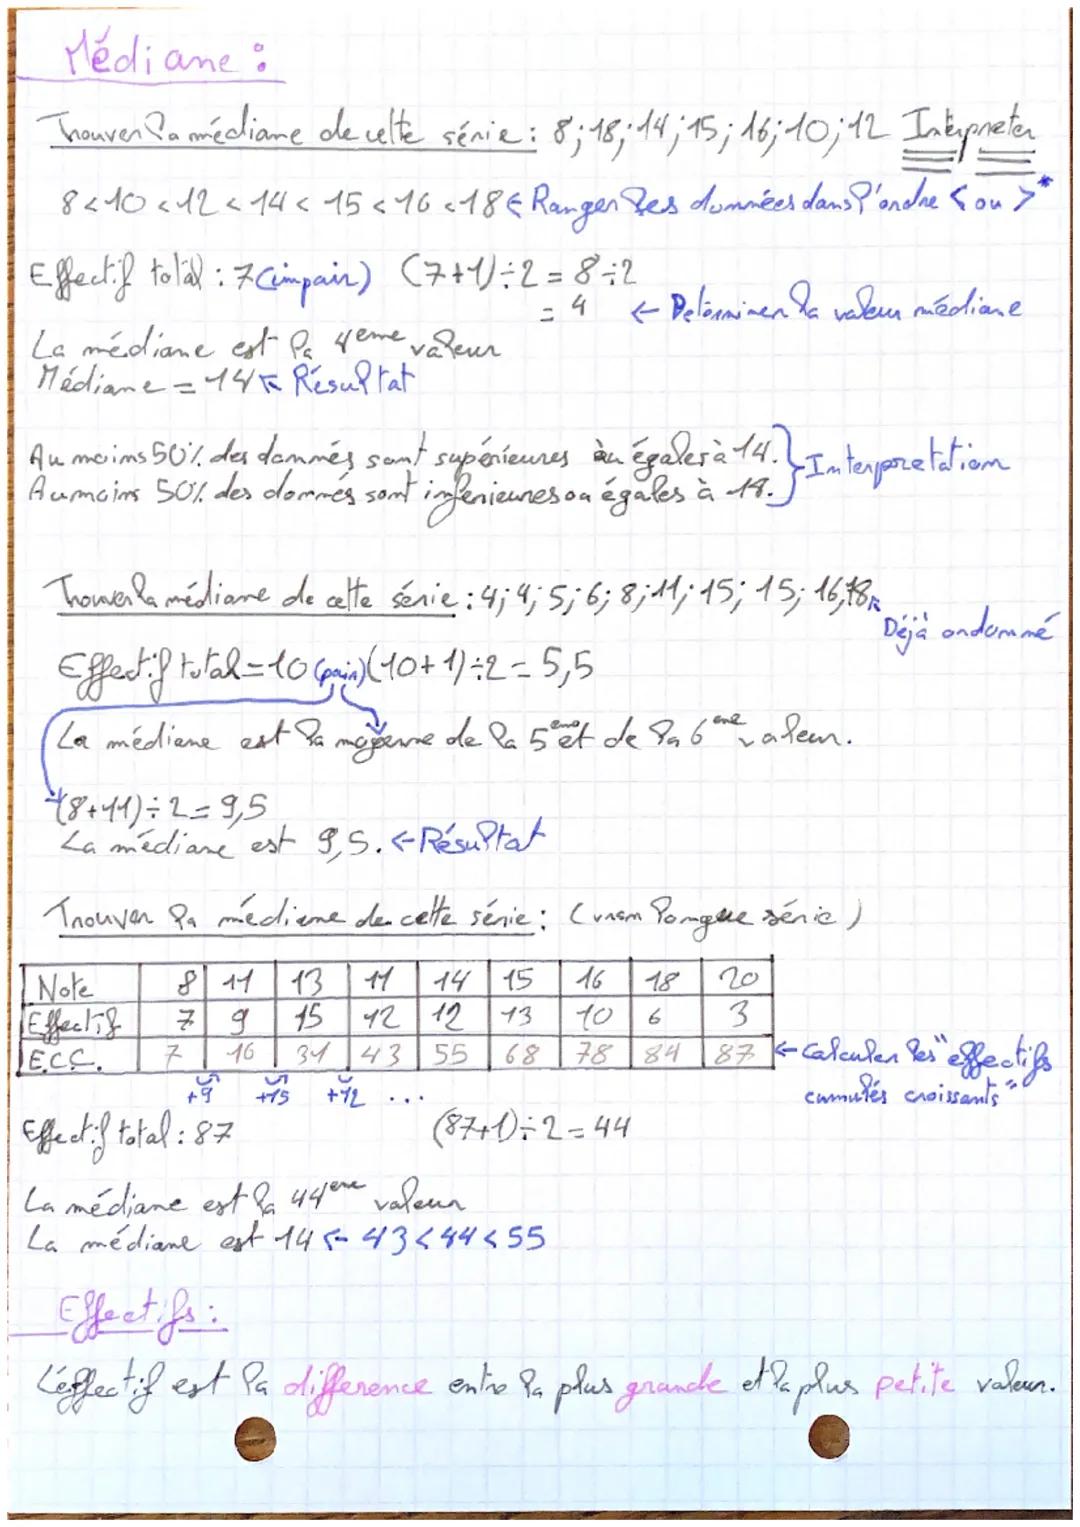 Médiane :
Trouver la médiane de cette série : 8; 18; 14; 15; 16; 10; 12 Interpreter
8 < 10 < 12 < 14 < 15 < 16 < 18 ← Ranger les données dans l'ordre < ou > *
Effectif total : 7 (impair) (7+1) ÷ 2 = 8 ÷ 2
= 4 ← Déterminer la valeur médiane
La médiane est la 4eme valeur
Médiane = 14 ← Résultat
Au moins 50% des donnés sont supérieures ou égales à 14.
Au moins 50% des donnés sont inferieures ou égales à 14. } Interpretation
Trouver la médiane de cette série : 4; 4; 5; 6; 8; 11; 15; 15; 16; 18 ←
Déjà ordonné
Effectif total = 10 (pair) (10+1) ÷ 2 = 5,5
La médiane est la moyenne de la 5eme et de la 6eme valeur.
(8+11) ÷ 2 = 9,5
La médiane est 9,5. ← Résultat
Trouver la médiane de cette série : (longue série)
Note 8 11 13 11 14 15 16 18 20
Effectif 7 9 15 12 12 13 10 6 3
E.C.C. 7 16 31 43 55 68 78 84 87 ← Calculer les "effectifs
cumulés croissants"
+9 +15 +12 ...
Effectif total : 87 (87+1) ÷ 2 = 44
La médiane est la 44eme valeur
La médiane est 14 ← 43 < 44 < 55
Effectifs :
L'éffectif est la difference entre la plus grande et la plus petite valeur.